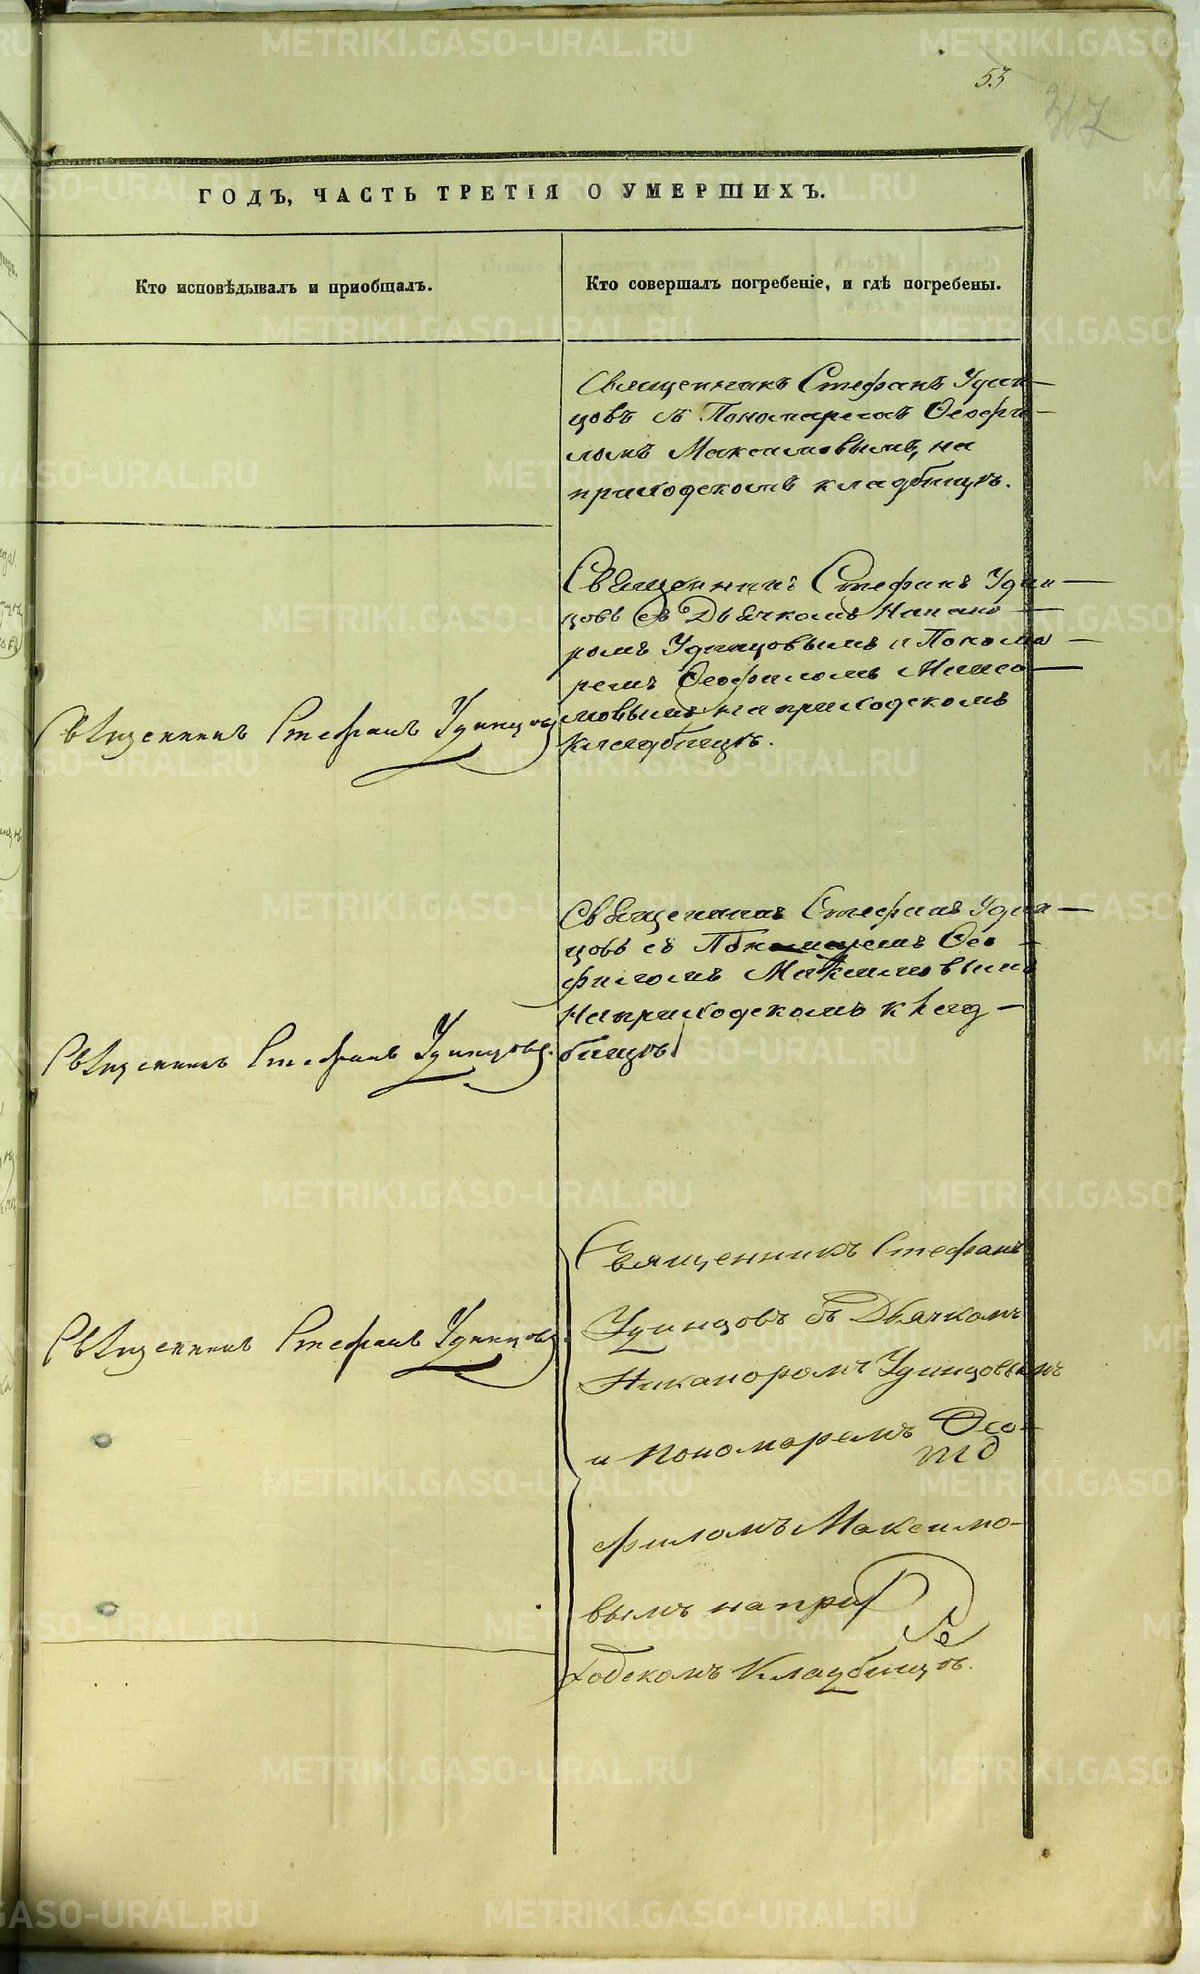 53
317
ГОДЪ, ЧАСТЬ ТРЕТІЯ О УМЕРШИХЪ.
Кто исповѣдывалъ и пріобщалъ.
Кто совершалъ погребеніе, и гдѣ погребены.
Священникъ Стефанъ Удин-
цовъ съ Пономаремъ Ѳеофи-
ломъ Максимовымъ, на
приходскомъ кладбищѣ.
Священникъ Стефанъ Удин-
цовъ съ Дьячкомъ Никано-
ромъ Удинцовымъ и Понома-
ремъ Ѳеофиломъ Макси-
мовымъ на приходскомъ
кладбищѣ.
Священникъ Стефанъ Удинцовъ
Священникъ Стефанъ Удин-
цовъ съ Пономаремъ Ѳео-
филомъ Максимовымъ
на приходскомъ клад-
бищѣ.
Священникъ Стефанъ Удинцовъ.
Священникъ Стефанъ
Удинцовъ съ Дьячкомъ
Никаноромъ Удинцовымъ
и Пономаремъ Ѳео-
филомъ Максимо-
вымъ на при
ходскомъ Кладбищѣ.
Священникъ Стефанъ Удинцовъ.
METRIKI.GASO-URAL.RU